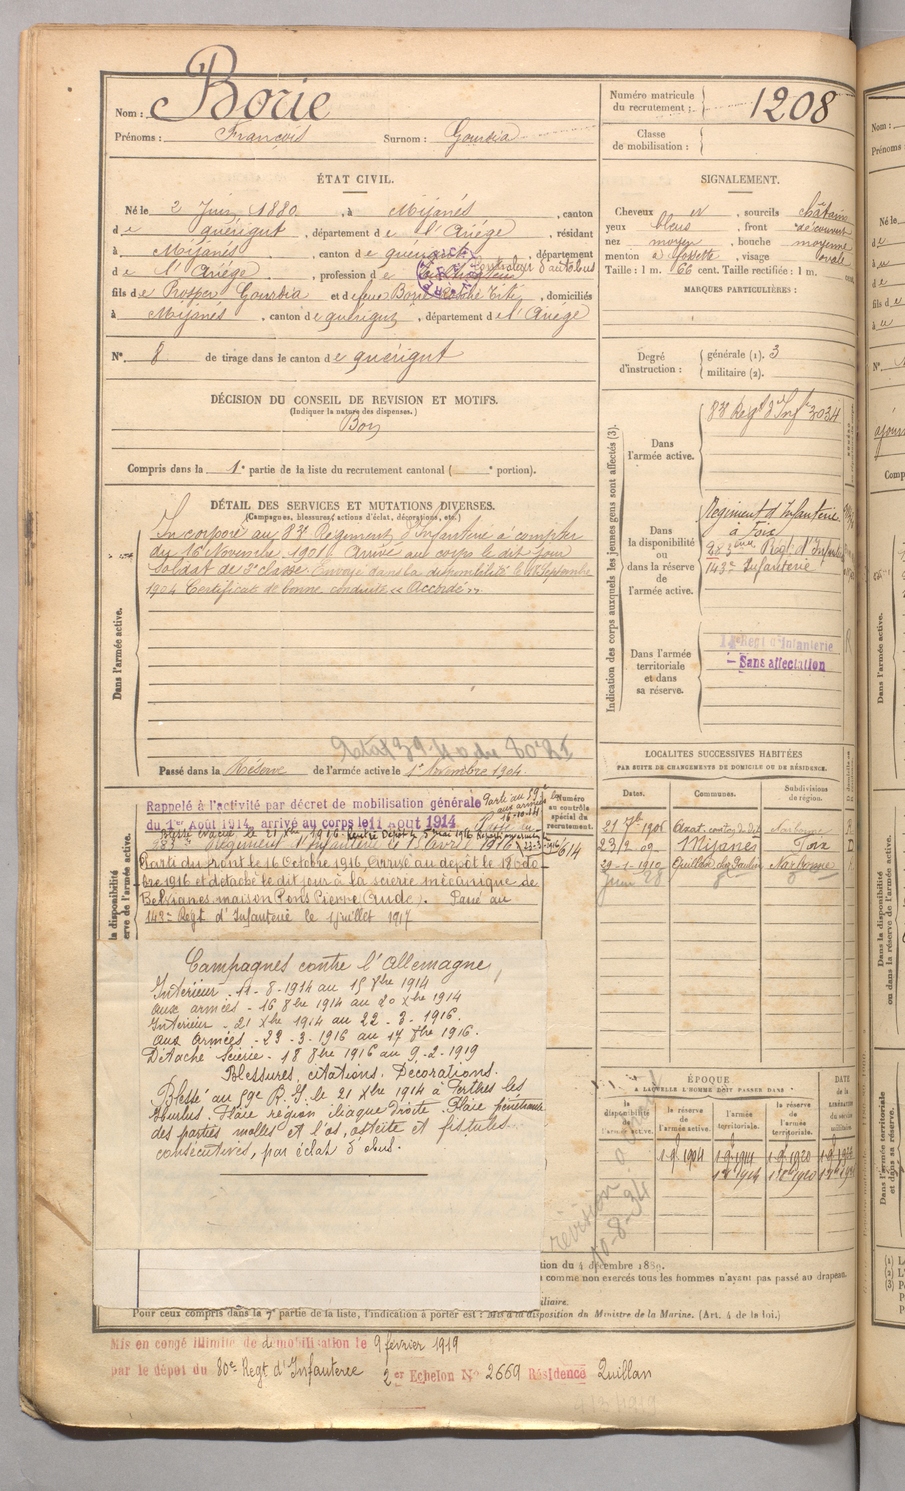 Nom : Borie
Prénoms : François Surnom : Gourbia
Numéro matricule du recrutement : 1208
Classe de mobilisation :
ÉTAT CIVIL.
Né le 2 Juin 1880, à Mijanès, canton
de quérigut, département de l'Ariège, résidant
à Mijanès, canton de quérigut, département
de l'Ariège, profession de Controleur d'autobus
fils de Prosper Gourbia et de feue Borie, domiciliés
à Mijanès, canton de quérigut, département de l'Ariège
N° 8 de tirage dans le canton de quérigut
SIGNALEMENT.
Cheveux et, sourcils châtains
yeux bleus, front découvert
nez moyen, bouche moyenne
menton à fossette, visage ovale
Taille : 1 m. 66 cent. Taille rectifiée : 1 m. cent.
MARQUES PARTICULIÈRES :
Degré d'instruction : générale (1). 3
militaire (2).
DÉCISION DU CONSEIL DE REVISION ET MOTIFS.
(Indiquer la nature des dispenses.)
Bon
Compris dans la 1e partie de la liste du recrutement cantonal ( e portion).
DÉTAIL DES SERVICES ET MUTATIONS DIVERSES.
(Campagnes, blessures, actions d'éclat, décorations, etc.)
Dans l'armée active.
Incorporé au 83e Régiment d'Infanterie à compter
du 16 Novembre 1901 Arrivé au corps le dit jour
Soldat de 2e classe. Envoyé dans la disponibilité le 18 Septembre
1904 Certificat de bonne conduite « Accordé ».
Passé dans la Réserve de l'armée active le 1er Novembre 1904
Indication des corps auxquels les jeunes gens sont affectés (3).
Dans l'armée active.
83e Régt d'Infie 3034
Dans la disponibilité ou dans la réserve de l'armée active.
Régiment d'Infanterie
à Foix
283ème Régt d'Infanterie
143e Infanterie
Dans l'armée territoriale et dans sa réserve.
Regt d'Infanterie
- Sans affectation
LOCALITÉS SUCCESSIVES HABITÉES
PAR SUITE DE CHANGEMENTS DE DOMICILE OU DE RÉSIDENCE.
Dates. Communes. Subdivisions de région.
21 7bre 1906 Axat Narbonne
23/2 09 Mijanès Foix
29-1-1910 Quillan Narbonne
Juin 28
Rappelé à l'activité par décret de mobilisation générale
du 1er Août 1914, arrivé au corps le 11 Août 1914
Parti au 59e
aux armées le
16-10-14
283e Régiment d'Infanterie le 15 avril 1916
Parti du front le 16 Octobre 1916 Arrivé au dépôt le 18 octo-
bre 1916 et détaché le dit jour à la scierie mécanique de
Belvianes maison Pons Pierre (Aude). Passé au
143e Régt d'Infanterie le 1 juillet 1917
Numéro au contrôle spécial du recrutement.
614
Campagnes contre l'Allemagne
Intérieur - 11-8-1914 au 15 8bre 1914
aux armées - 16 8bre 1914 au 20 Xbre 1914
Intérieur - 21 Xbre 1914 au 22-3-1916.
aux Armées - 23-3-1916 au 17 8bre 1916.
Détaché scierie - 18 8bre 1916 au 9-2-1919
Blessures, citations, Décorations.
Blessé au 59e R.I. le 21 Xbre 1914 à Perthes les
Hurlus. Plaie région iliaque droite. Plaie pénétrante
des parties molles et l'os, ostéite et fistules
consécutives, par éclat d'obus.
ÉPOQUE
À LAQUELLE L'HOMME DOIT PASSER DANS
la disponibilité de l'armée active.
la réserve de l'armée active.
l'armée territoriale.
la réserve de l'armée territoriale.
DATE de la LIBÉRATION du service militaire.
1-9bre 1904
revision
10-8-34
tion du 4 décembre 1889.
comme non exercés tous les hommes n'ayant pas passé au drapeau.
iliaire.
Pour ceux compris dans la 7e partie de la liste, l'indication à porter est : Mis à la disposition du Ministre de la Marine. (Art. 4 de la loi.)
Mis en congé illimité de démobilisation le 9 février 1919
par le dépôt du 80e Regt d'Infanterie 2er Echelon No 2669 Résidence Quillan